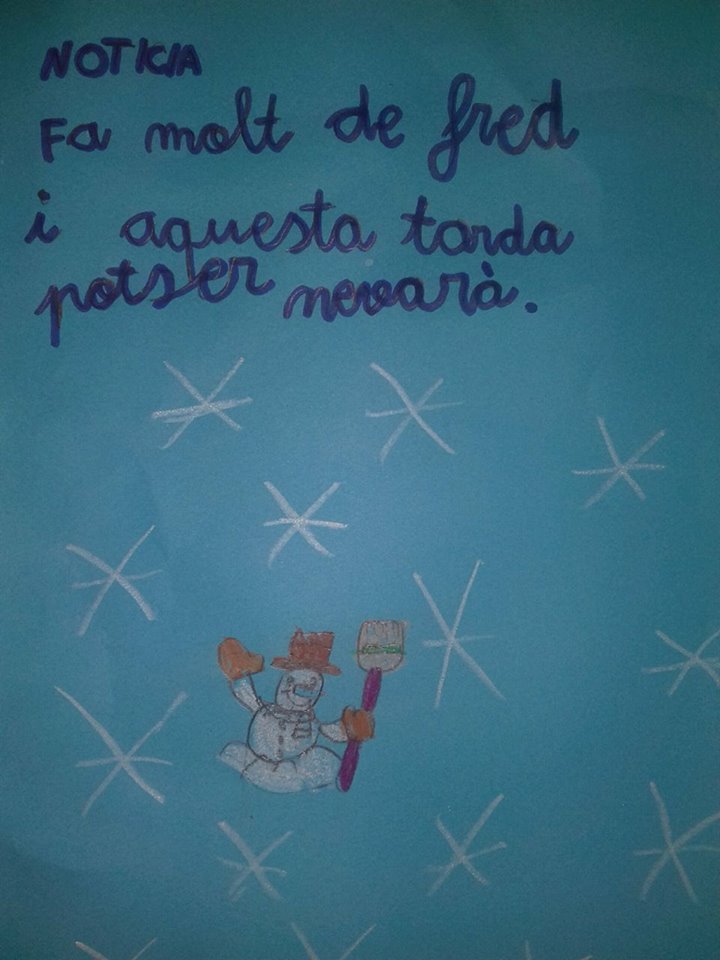 NOTICIA
Fa molt de fred
i aquesta tarda
potser nevarà.